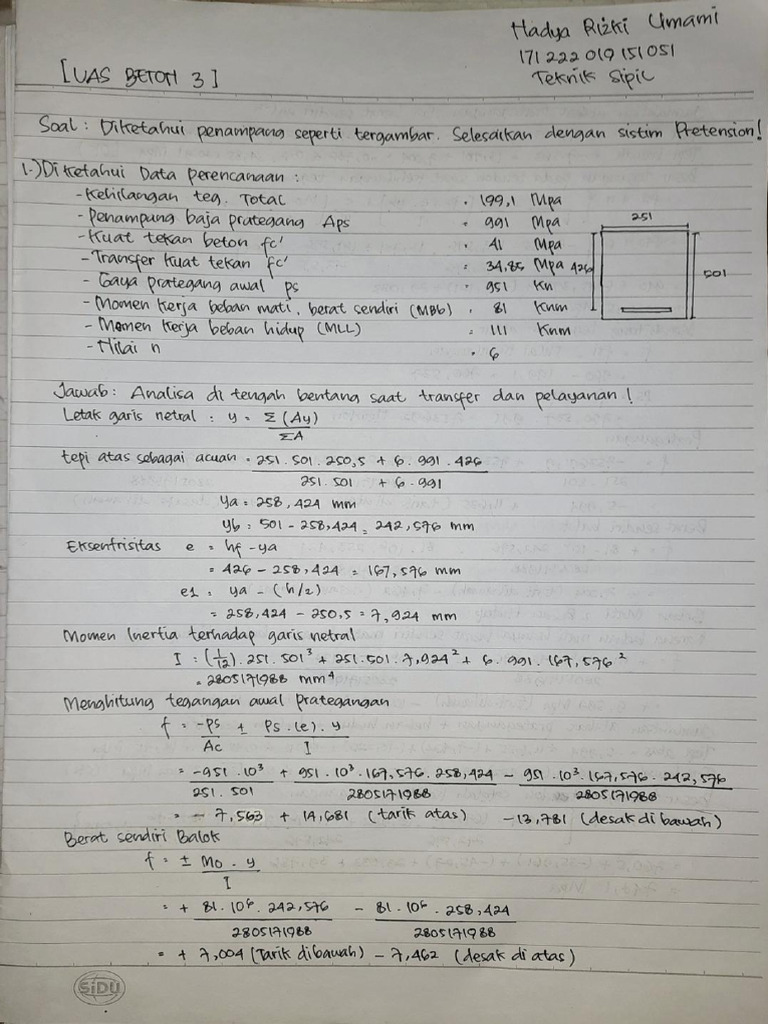 Hadya Rizki Umami
171 222 019 151 051
Teknik Sipil
[UAS BETON 3]
Soal : Diketahui penampang seperti tergambar. Selesaikan dengan sistim Pretension!
1.) Diketahui Data perencanaan :
- Kehilangan teg. Total = 199,1 Mpa
- Penampung baja prategang Aps = 991 Mpa
- Kuat tekan beton fc' = 41 Mpa
- Transfer kuat tekan fc' = 34,85 Mpa
- Gaya prategang awal ps = 951 Kn
- Momen kerja beban mati, berat sendiri (MBb) = 81 Knm
- Momen kerja beban hidup (MLL) = 111 Knm
- Nilai n = 6
251
426
501
Jawab : Analisa di tengah bentang saat transfer dan pelayanan !
Letak garis netral : y = Σ (Ay) / ΣA
tepi atas sebagai acuan = 251 . 501 . 250,5 + 6 . 991 . 426 / 251 . 501 + 6 . 991
ya = 258,424 mm
yb = 501 - 258,424 = 242,576 mm
Eksentrisitas e = hf - ya
= 426 - 258,424 = 167,576 mm
e1 = ya - (h/2)
= 258,424 - 250,5 = 7,924 mm
Momen Inertia terhadap garis netral
I = (1/12) . 251 . 501³ + 251 . 501 . 7,924² + 6 . 991 . 167,576²
= 2805171988 mm⁴
Menghitung tegangan awal prategangan
f = -Ps / Ac ± Ps . (e) . y / I
= -951 . 10³ / 251 . 501 + 951 . 10³ . 167,576 . 258,424 / 2805171988 - 951 . 10³ . 167,576 . 242,576 / 2805171988
= - 7,563 + 14,681 (tarik atas) - 13,781 (desak di bawah)
Berat sendiri Balok
f = ± Mo . y / I
= + 81 . 10⁶ . 242,576 / 2805171988 - 81 . 10⁶ . 258,424 / 2805171988
= + 7,004 (Tarik dibawah) - 7,462 (desak di atas)
SiDU